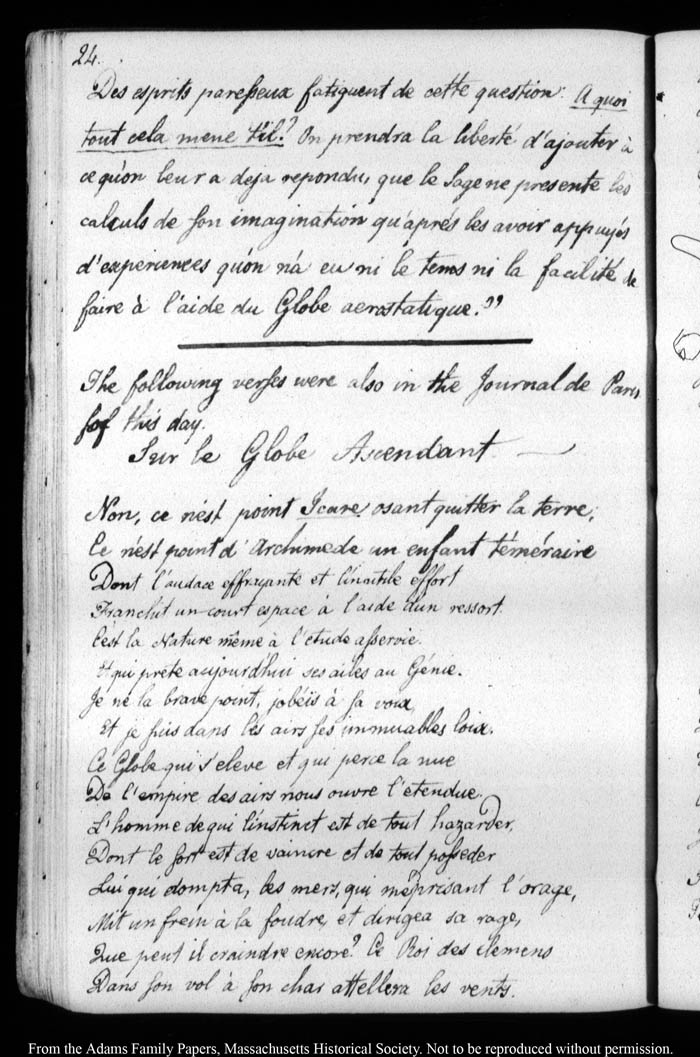 24.
Des esprits paresseux fatiguent de cette question. A quoi
tout cela mene t'il? On prendra la liberté d'ajouter à
ce qu'on leur a deja repondu, que le Sage ne presente les
calculs de son imagination qu'aprés les avoir appuyés
d'experiences qu'on n'a eu ni le tems ni la facilité de
faire à l'aide du Globe aerostatique."
The following verses were also in the Journal de Paris
of this day.
Sur le Globe Ascendant.
Non, ce n'est point Icare, osant quitter la terre;
Ce n'est point d'Archimede un enfant téméraire
Dont l'audace effrayante et l'inutile effort
Franchit un court espace à l'aide d'un ressort.
C'est la Nature même à l'etude asservie.
Et qui prête aujourd'hui ses ailes au Génie.
Je ne la brave point, j'obéis à sa voix,
Et je suis dans les airs ses immuables loix.
Ce Globe qui s'eleve et qui perce la nue
De l'empire des airs nous ouvre l'etendue.
L'homme de qui l'instinct est de tout hazarder,
Dont le sort est de vaincre et de tout posseder
Lui qui dompta, les mers, qui méprisant l'orage,
Mit un frein à la foudre, et dirigea sa rage,
Que peut il craindre encore? Ce Roi des elemens
Dans son vol à son char attellera les vents.
From the Adams Family Papers, Massachusetts Historical Society. Not to be reproduced without permission.